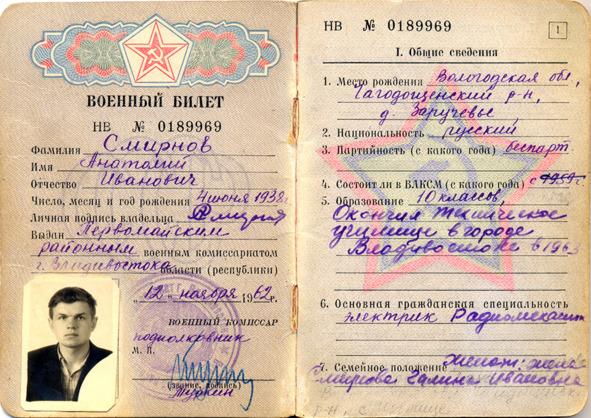 ВОЕННЫЙ БИЛЕТ
НВ № 0189969
Фамилия Смирнов
Имя Анатолий
Отчество Иванович
Число, месяц и год рождения 4 июня 1938г.
Личная подпись владельца
Выдан Первомайским
районным военным комиссариатом
г. Владивостока области (республики)
„12" ноября 1962
ВОЕННЫЙ КОМИССАР
подполковник
М. П.
(звание, подпись)
НВ № 0189969
1
I. Общие сведения
1. Место рождения Вологодская обл,
Чагодощенский р-н,
д. Заручевье
2. Национальность русский
3. Партийность (с какого года) беспарт
4. Состоит ли в ВЛКСМ (с какого года) с 1959г.
5. Образование 10 классов,
Окончил техническое
училище в городе
Владивостоке в 1963
6. Основная гражданская специальность
электрик Радиомеханик
7. Семейное положение женат: жена
Смирнова Галина Ивановна